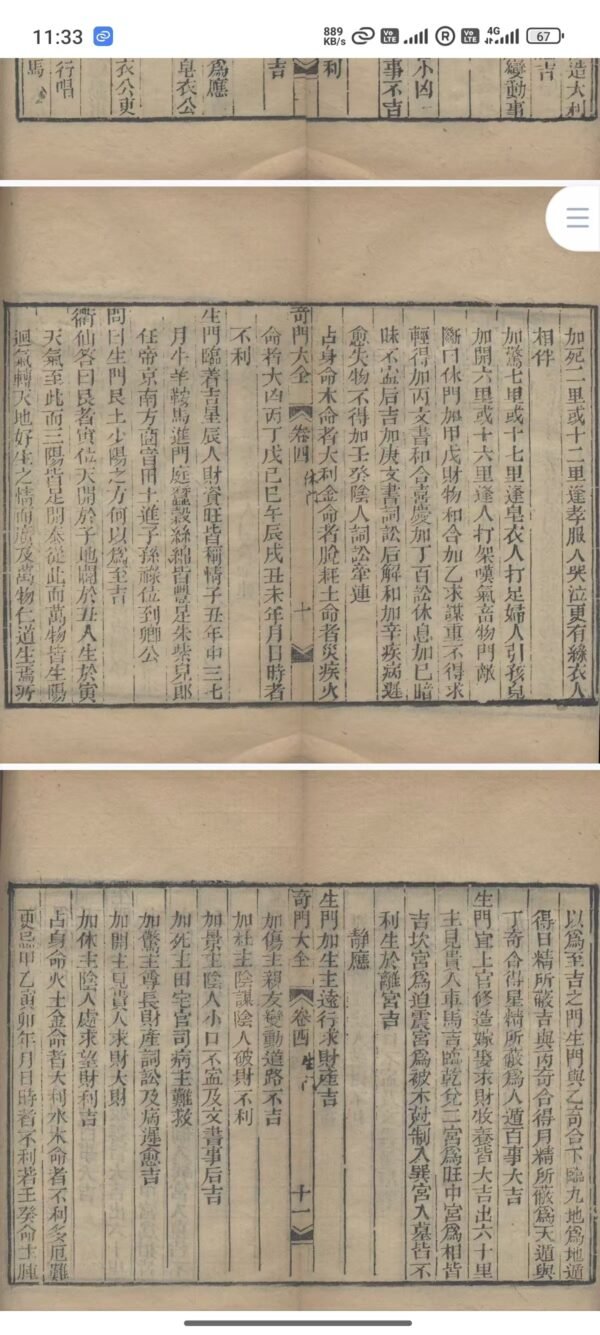 11:33
889 KB/s
Vo LTE
R
Vo LTE
4G
67
造大利
吉
變動事
小凶
事不吉
利
吉
爲應
皂衣公
衣公吏
行唱
馬
加死二里或十二里逢孝服人哭泣更有絲衣人
相伴
加驚七里或十七里逢皂衣人打足婦人引孩兒
加開六里或十六里逢人打架嘆氣畜物鬥敵
斷曰休門加甲戊財物和合加乙求謀重不得求
輕得加丙文書和合喜慶加丁百訟休息加巳暗
昧不寍后吉加庚文書詞訟后解和加辛疾病遲
愈失物不得加壬癸陰人詞訟牽連
占身命木命者大利金命者脫耗土命者災疾火
奇門大全
卷四
休門
十
命者大凶丙丁戊己巳午辰戌丑未年月日時者
不利
生門臨著吉星辰人財資旺皆稱情子丑年中三七
月牛羊鞍馬進門庭蠶穀絲綿皆豐足朱紫兒郎
任帝京南方啇音田土進子孫祿位到卿公
問曰生門艮土少陽之方何以爲至吉
衢仙答曰艮者寅位天開於子地闢於丑人生於寅
天氣至此而三陽皆足開泰從此而萬物皆生陽
迴氣轉天地好生之情而廣及萬物仁道生焉所
以爲至吉之門生門與乙奇合下臨九地爲地遁
得日精所蔽吉與丙奇合得月精所蔽爲天遁與
丁奇合得星精所蔽爲人遁百事大吉
生門宜上官修造嫁娶求財收養皆大吉出六十里
主見貴人車馬吉臨乾兌二宮爲旺中宮爲相皆
吉坎宮爲迫震宮爲破木尅制入巽宮入墓皆不
利生於離宮吉
靜應
生門加生主遠行求財產吉
奇門大全
卷四
生門
十一
加傷主親友變動道路不吉
加杜主陰謀陰人破財不利
加景主陰人小口不寍及文書事后吉
加死主田宅官司病主難救
加驚主尊長財產詞訟及病遲愈吉
加開主見貴人求財大財
加休主陰人處求望財利吉
占身命火土金命者大利水木命者不利多厄難
更忌甲乙寅卯年月日時者不利若壬癸命主腫